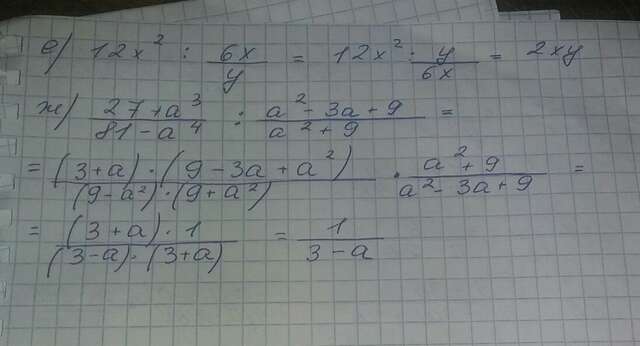 е) 12x² : 6x/y = 12x² · y/6x = 2xy
ж) (27+a³)/(81-a⁴) : (a²-3a+9)/(a²+9) =
= ((3+a)·(9-3a+a²))/((9-a²)·(9+a²)) · (a²+9)/(a²-3a+9) =
= ((3+a)·1)/((3-a)·(3+a)) = 1/(3-a)